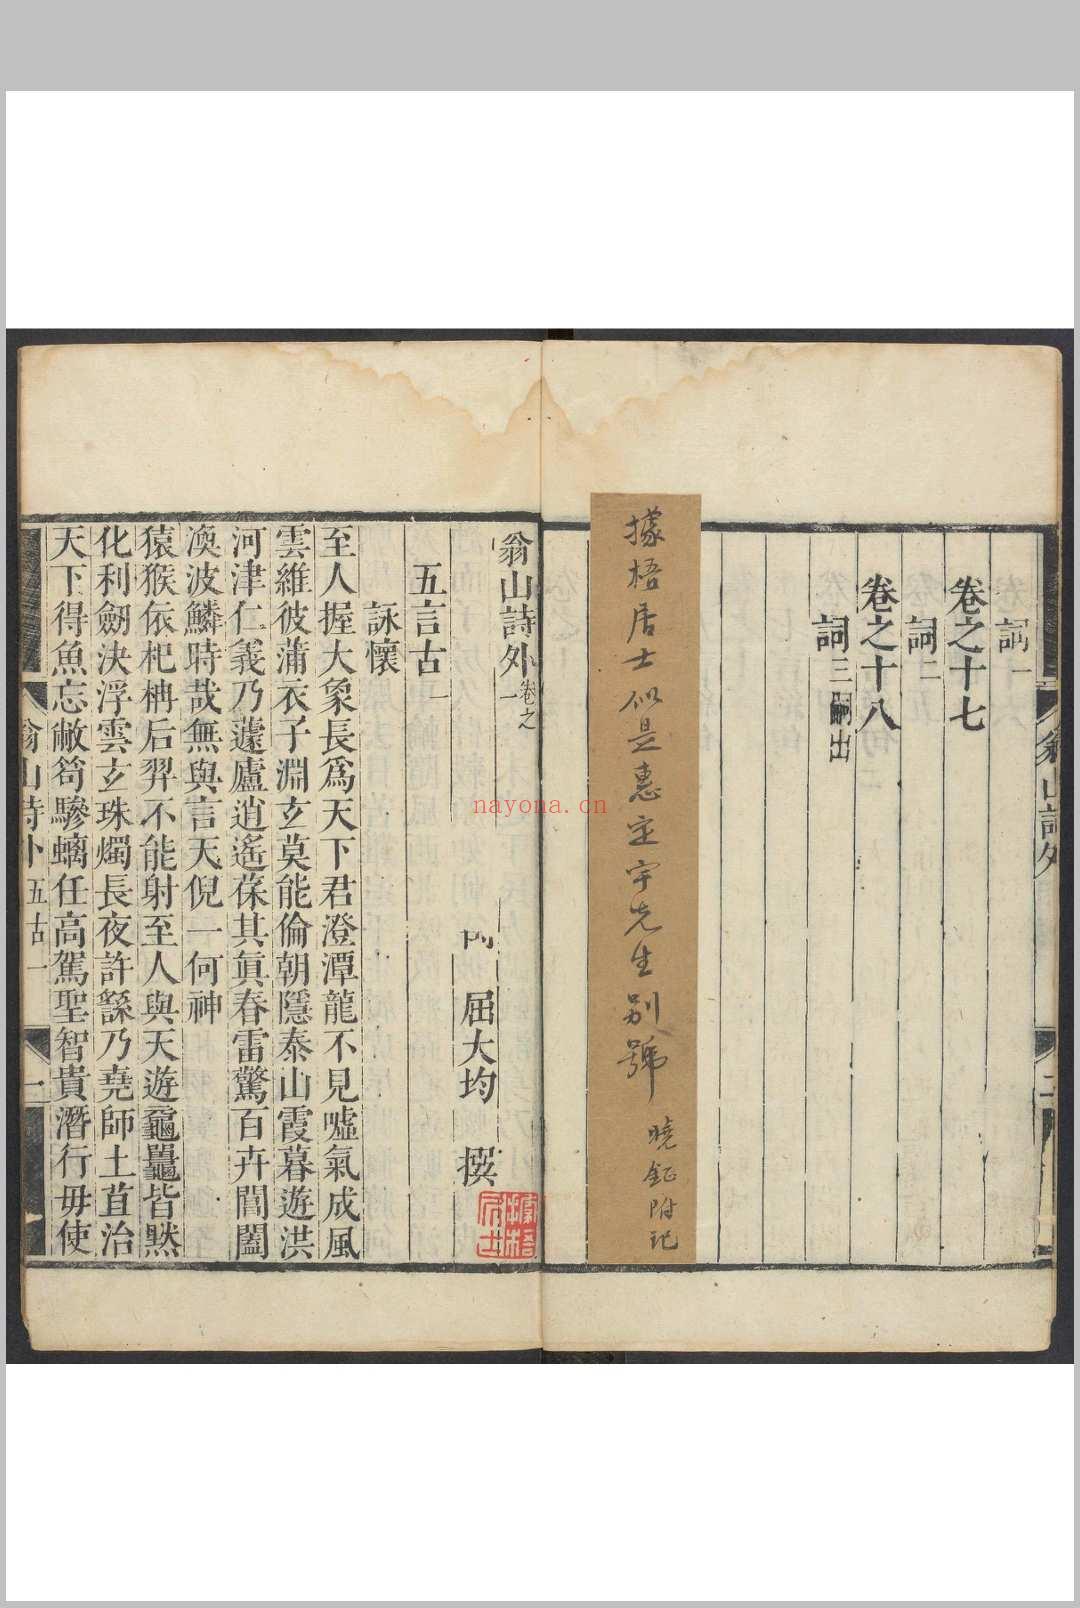 詞一
卷之十七
詞二
卷之十八
詞三嗣出
據梧居士似是惠定宇先生別號
曉鉦附記
nayona.cn
翁山詩外卷之一
屈大均 撰
據梧居士
五言古一
詠懷
至人握大象長爲天下君澄潭龍不見噓氣成風
雲維彼蒲衣子淵玄莫能倫朝隱泰山霞暮遊洪
河津仁義乃蘧廬逍遙葆其眞春雷驚百卉閶闔
渙波鱗時哉無與言天倪一何神
猿猴依杞柟后羿不能射至人與天遊龜鼉皆黙
化利劒決浮雲玄珠燭長夜許繇乃堯師土苴治
天下得魚忘敝笱驂螭任高駕聖智貴潛行毋使
翁山詩外 五古一 一
翁山詩外 二